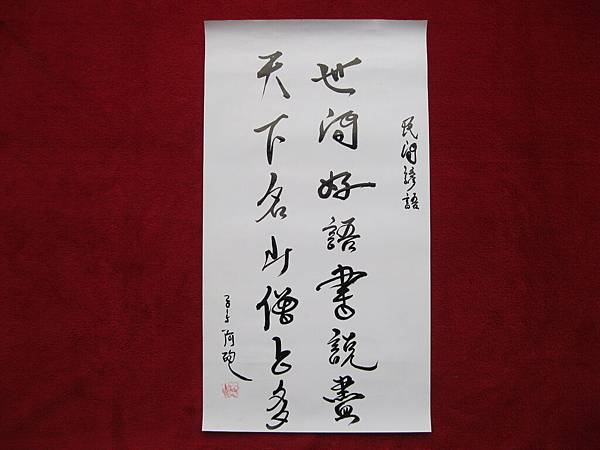 民間諺語
世間好語書說盡
天下名山僧占多